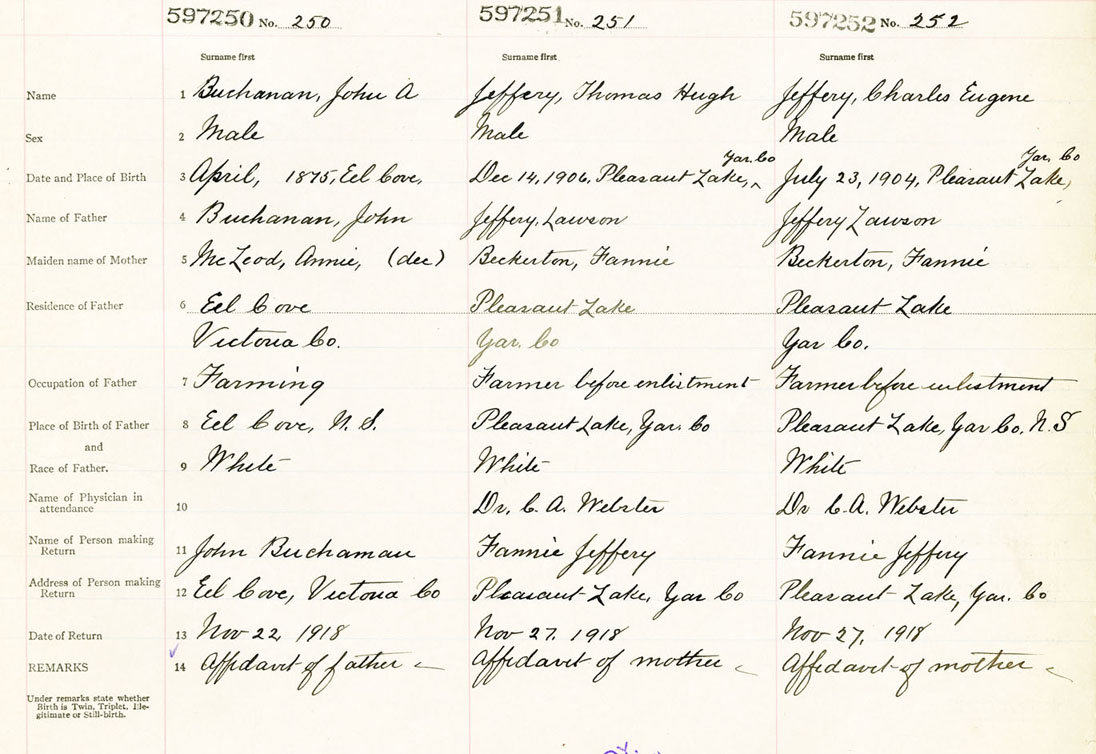 597250 No. 250 597251 No. 251 597252 No. 252
Surname first Surname first Surname first
Name 1 Buchanan, John A Jeffery, Thomas Hugh Jeffery, Charles Eugene
Sex 2 Male Male Male
Yar. Co Yar. Co
Date and Place of Birth 3 April, 1875, Eel Cove, Dec 14, 1906, Pleasant Lake, ^ July 23, 1904, Pleasant Lake,
Name of Father 4 Buchanan, John Jeffery, Lawson Jeffery Lawson
Maiden name of Mother 5 McLeod, Annie, (dec) Beckerton, Fannie Beckerton, Fannie
Residence of Father 6 Eel Cove Pleasant Lake Pleasant Lake
Victoria Co. Yar. Co Yar Co.
Occupation of Father 7 Farming Farmer before enlistment Farmer before enlistment
Place of Birth of Father 8 Eel Cove, N.S. Pleasant Lake, Yar. Co Pleasant Lake, Yar Co. N.S
and
Race of Father. 9 White White White
Name of Physician in
attendance 10 Dr. C. A. Webster Dr C.A. Webster
Name of Person making
Return 11 John Buchaman Fannie Jeffery Fannie Jeffery
Address of Person making
Return 12 Eel Cove, Victoria Co Pleasant Lake, Yar Co Pleasant Lake, Yar. Co
Date of Return 13 Nov 22, 1918 Nov 27. 1918 Nov 27, 1918
REMARKS 14 Affidavit of father Affidavit of mother Affidavit of mother
Under remarks state whether
Birth is Twin, Triplet, Ille-
gitimate or Still-birth.